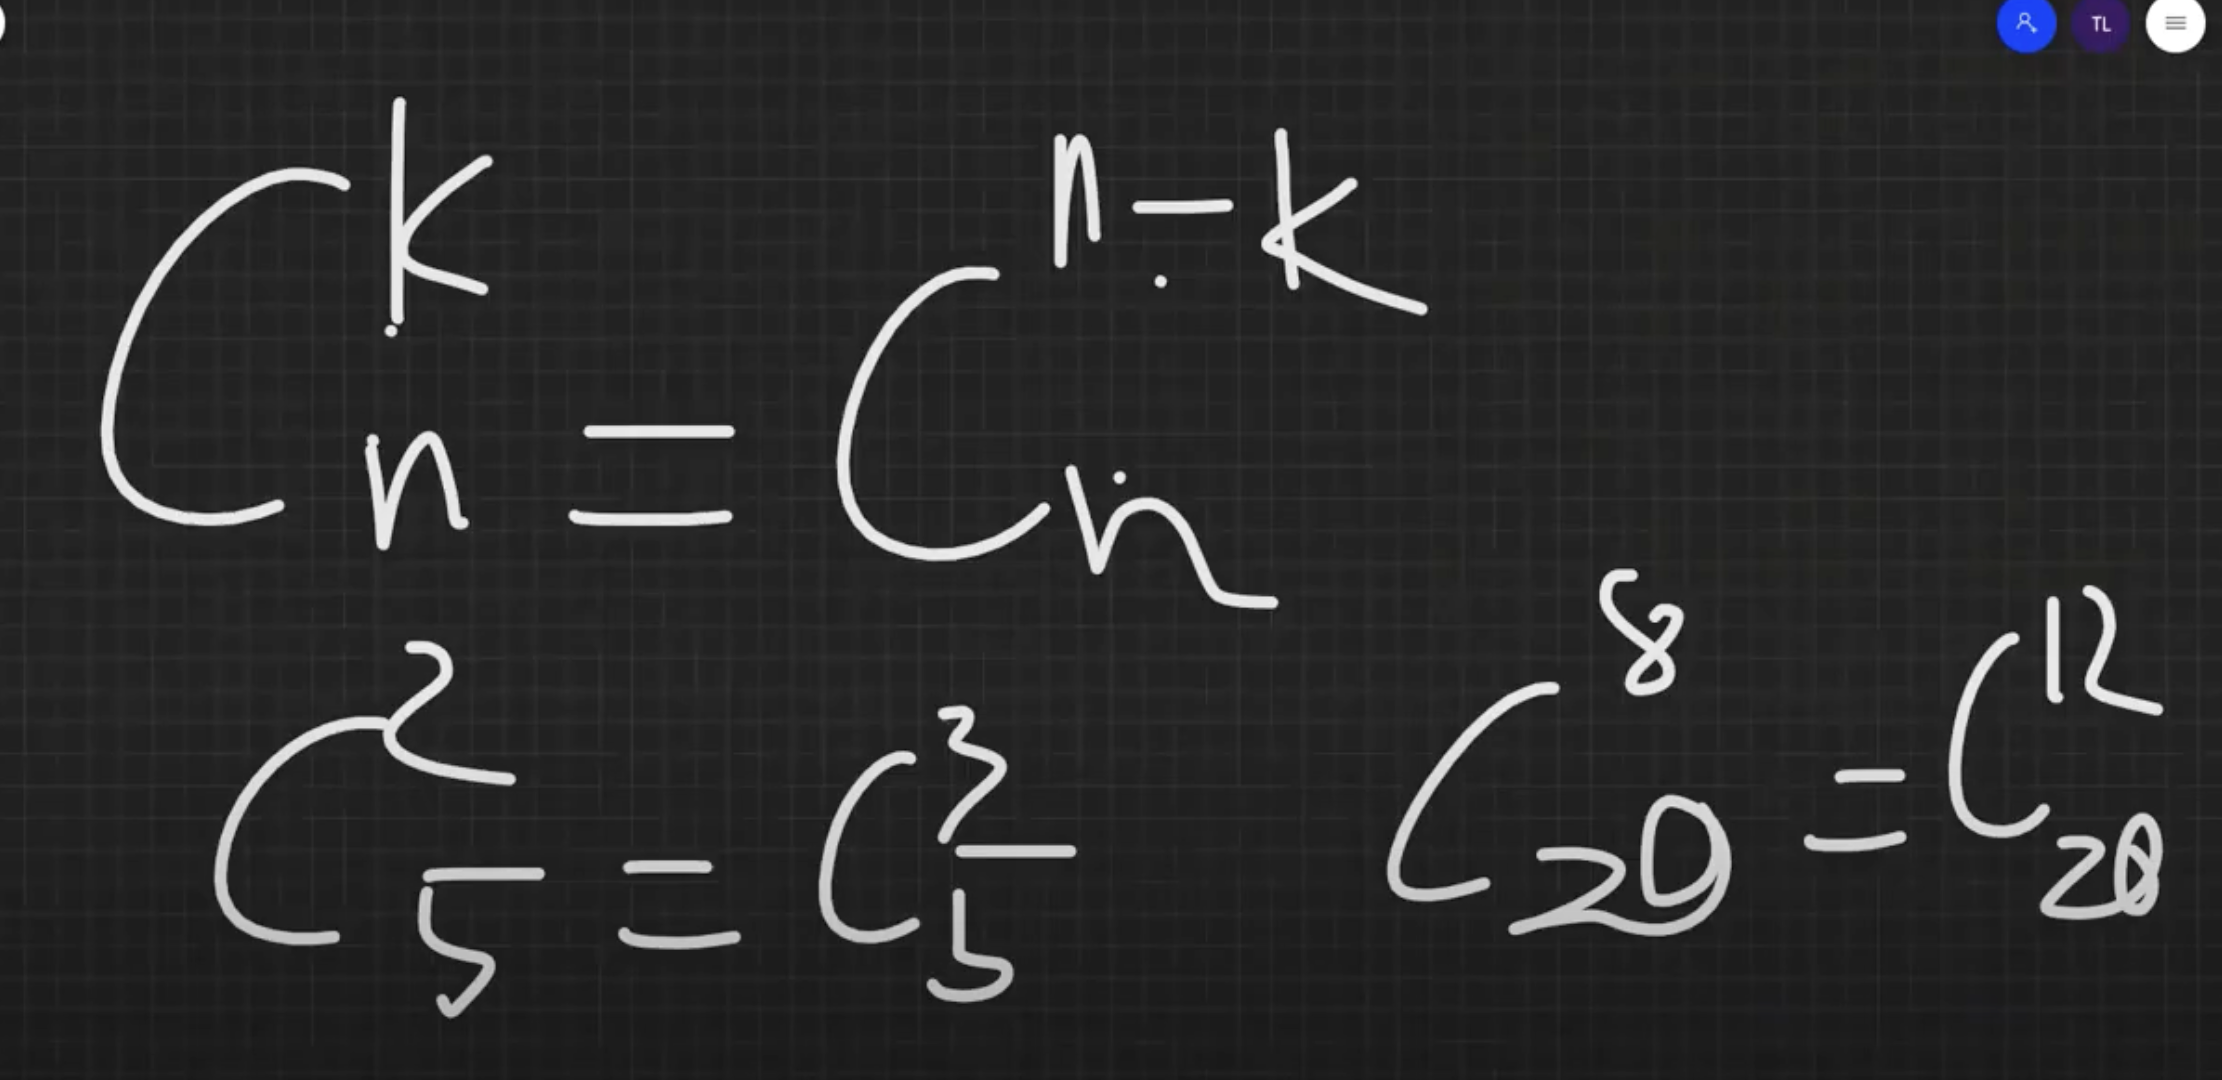 TL
C_n^k = C_n^{n-k}
C_5^2 = C_5^3
C_{20}^8 = C_{20}^{12}